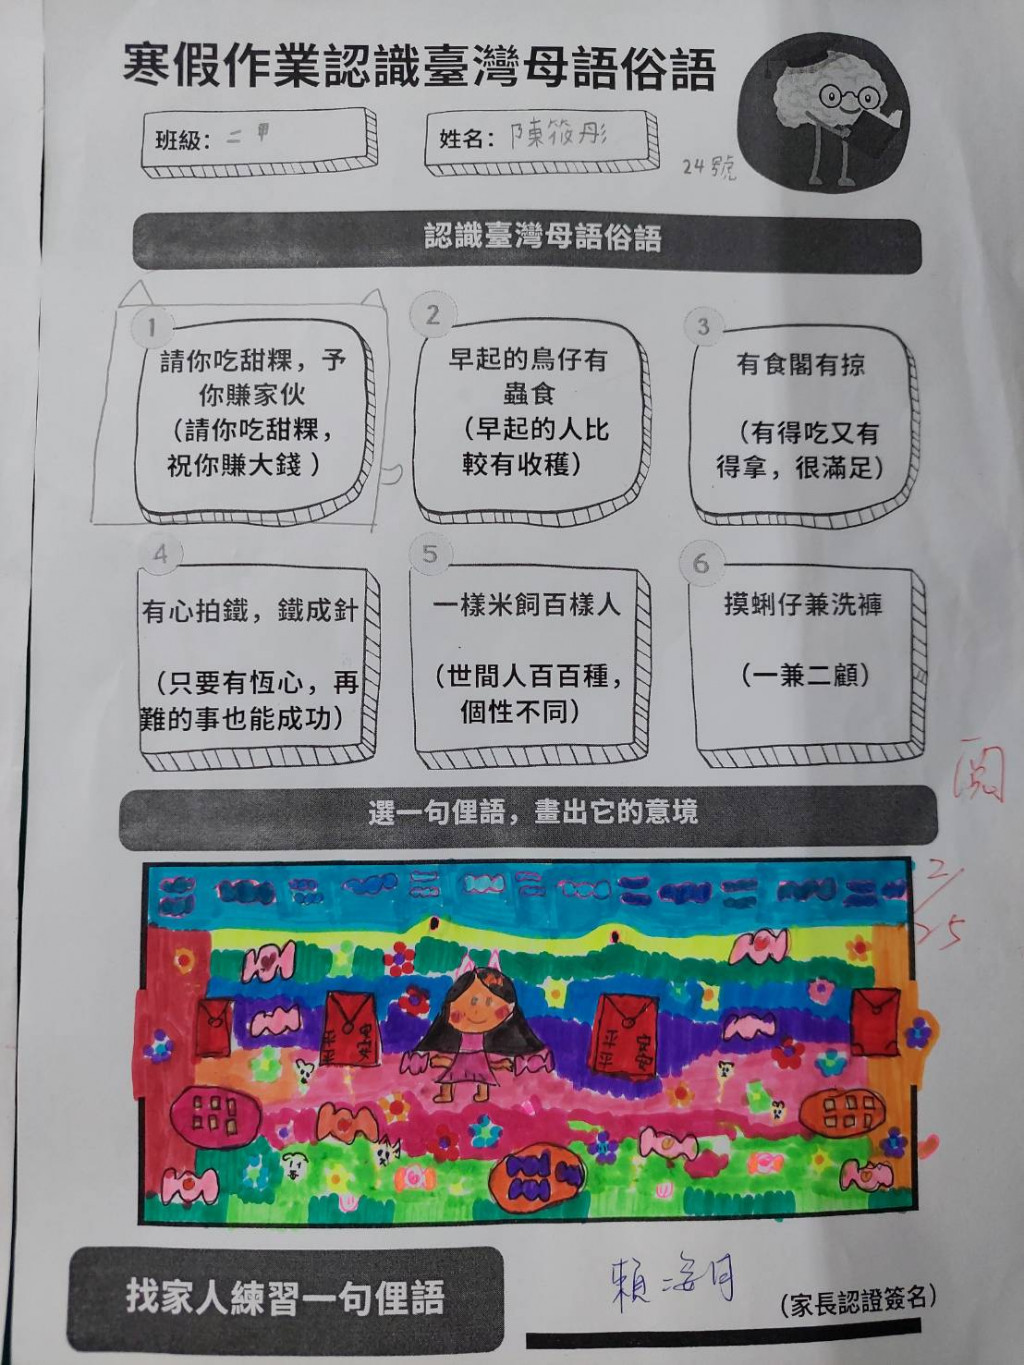 寒假作業認識臺灣母語俗語
班級：二甲
姓名：陳筱彤
24號
認識臺灣母語俗語
1
請你吃甜粿，予
你賺家伙
（請你吃甜粿，
祝你賺大錢）
2
早起的鳥仔有
蟲食
（早起的人比
較有收穫）
3
有食閣有掠
（有得吃又有
得拿，很滿足）
4
有心拍鐵，鐵成針
（只要有恆心，再
難的事也能成功）
5
一樣米飼百樣人
（世間人百百種，
個性不同）
6
摸蜊仔兼洗褲
（一兼二顧）
閱
2/25
選一句俚語，畫出它的意境
平平安安
找家人練習一句俚語
（家長認證簽名）